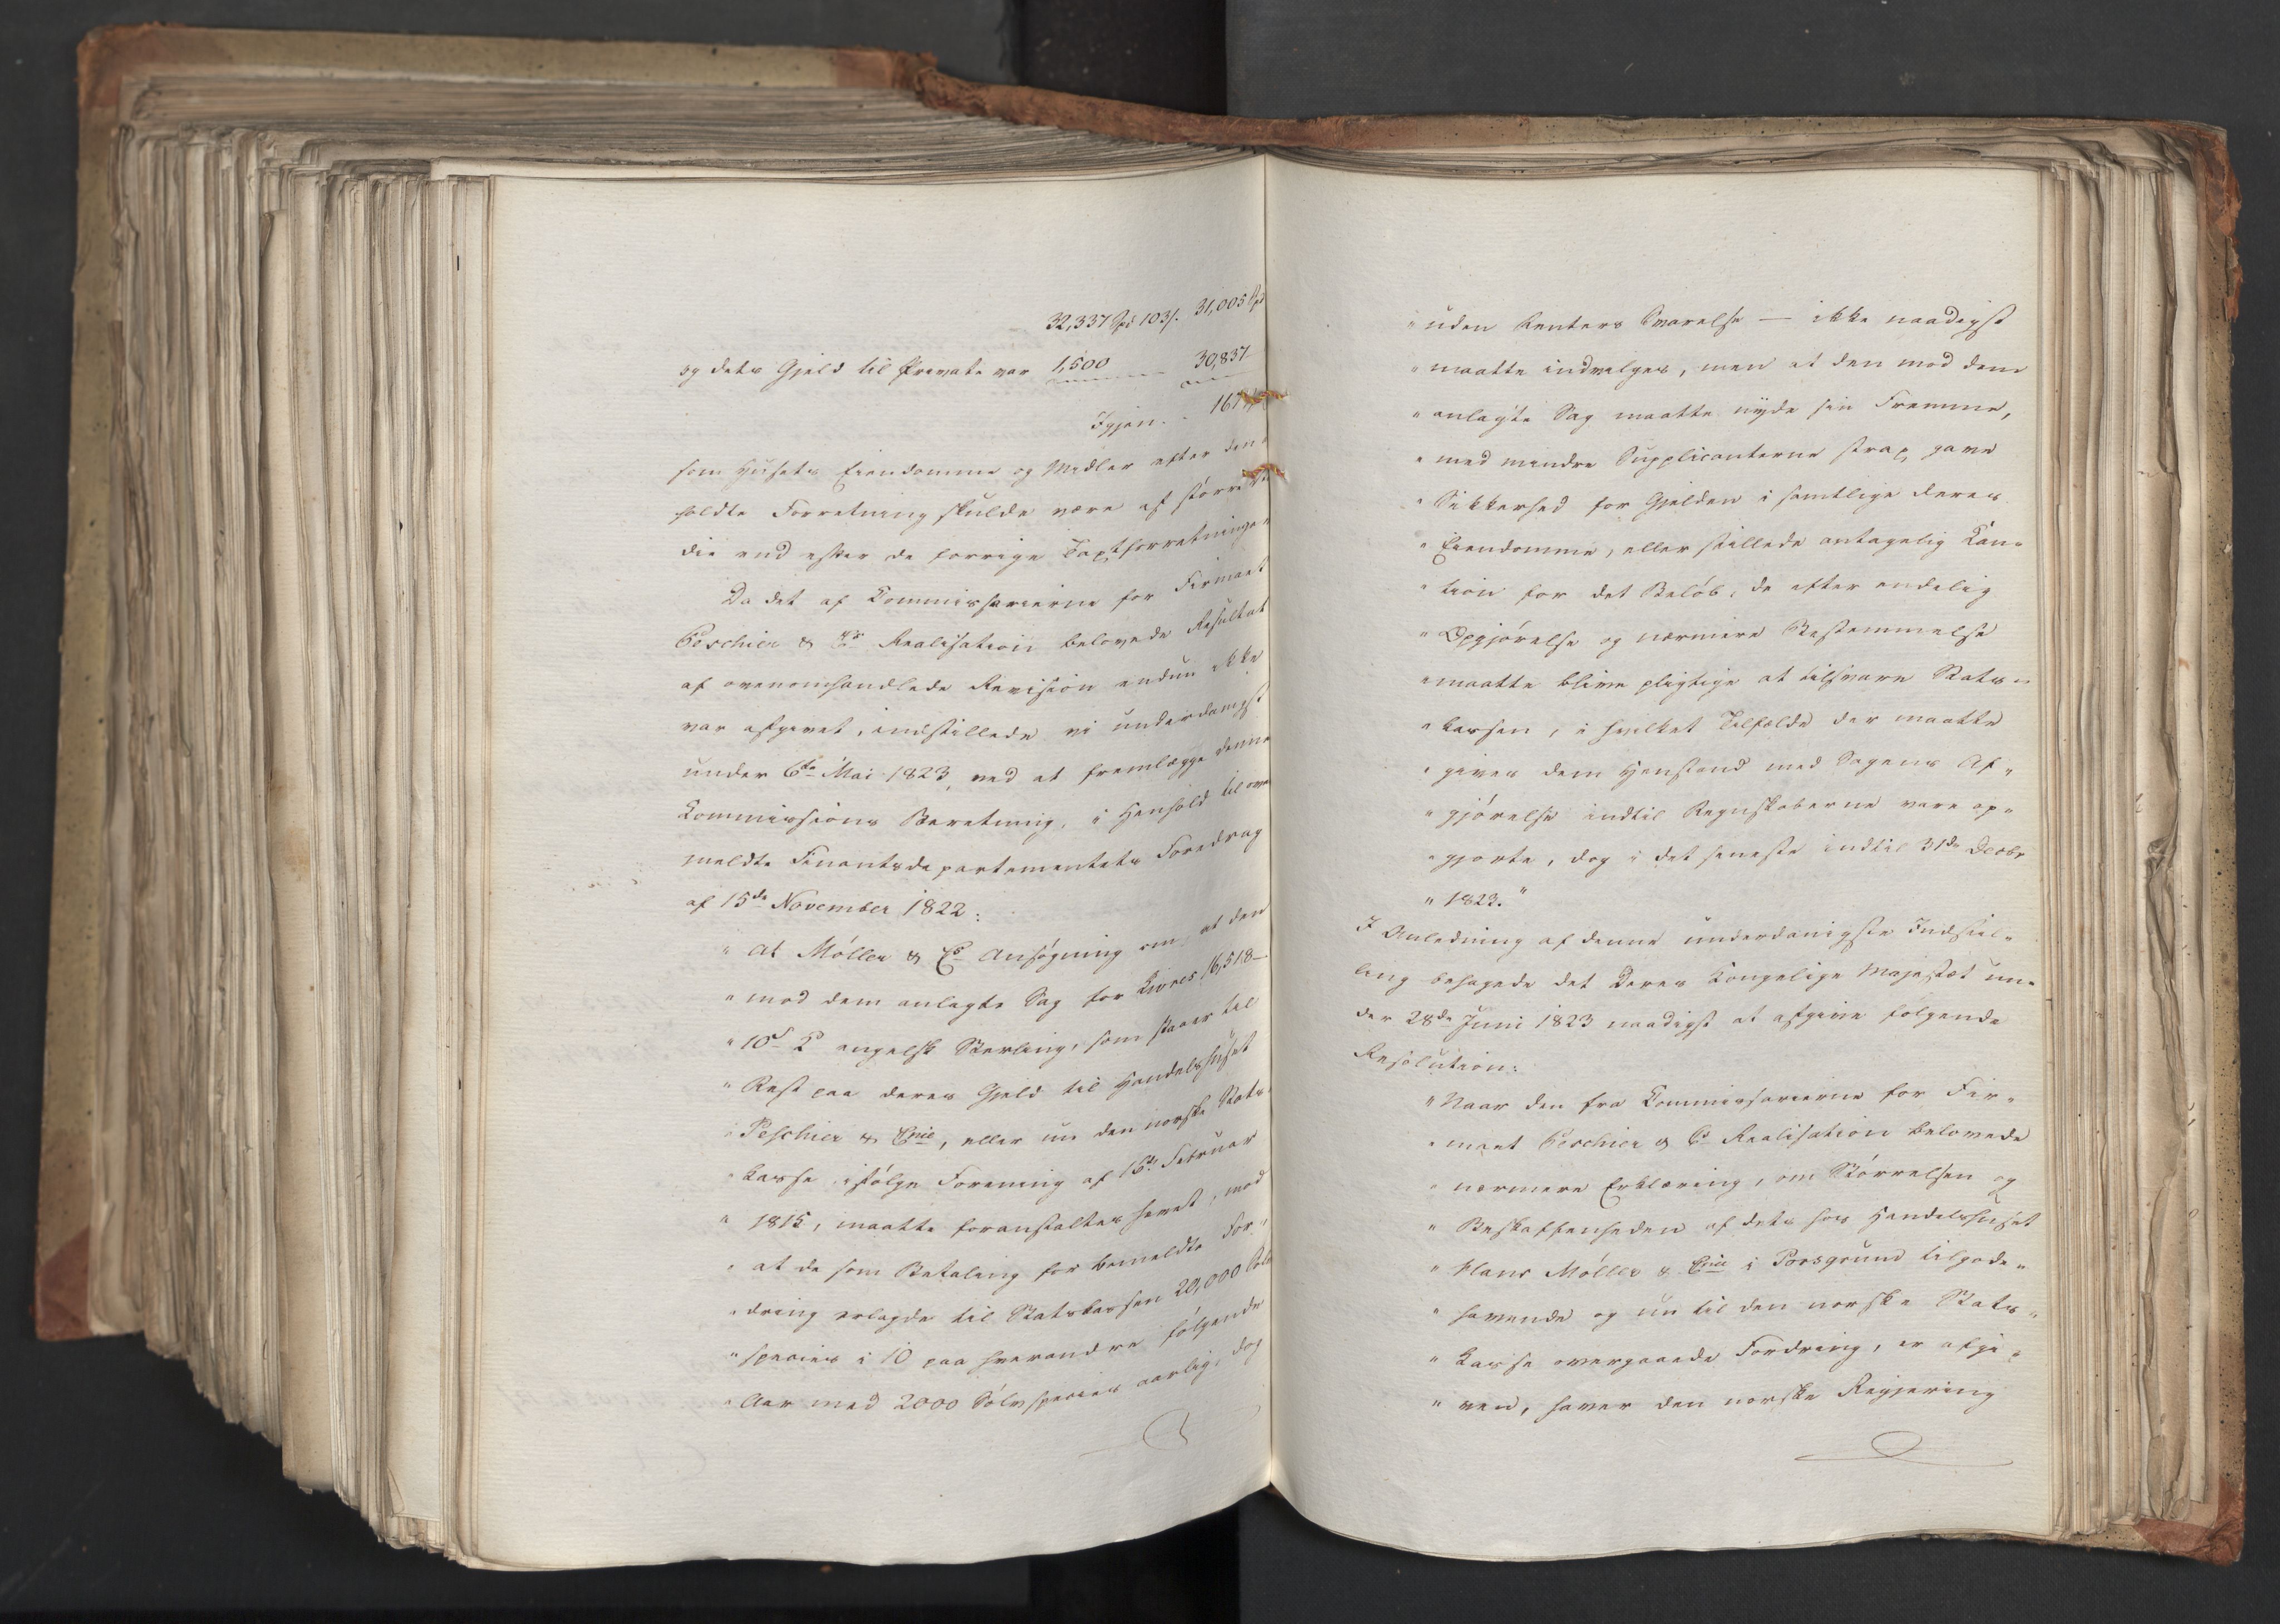 32,337 Spd 103/. 31,005 Spd
og dets Gjeld til Private var 1,500 30,837
Igjen. 167
som Husets Eiendomme og Midler efter den
holdte Forretning skulde være af større
die end efter de forrige Taxtforretninger
Da det af Commissarierne for Firmaet
Peschier & Co Realisation belovede Resultat
af ovenomhandlede Revision endnu ikke
var afgivet, indstillede vi underdanigst
under 6te Mai 1823, ved at fremlægge denne
Kommissions Beretning, i Henhold til oven
meldte Finantsdepartementets Foredrag
af 15de November 1822:
" At Møller & Co Ansøgning om, at den
" mod dem anlagte Sag for Livres 16,518 –
" 10 s. 2 d. engelsk Sterling, som staaer til
" Rest paa deres Gjeld til Handelshuset
" Peschier & Cnie, eller nu den norske Stats
" kasse ifølge Forening af 16de Februar
" 1815, maatte foranstaltes hævet, mod
" at de som Betaling for bemeldte For"
" dring erlagde til Statskassen 20,000 Sølv
" species i 10 paa hverandre følgende
" Aar med 2000 Sølvspecies aarlig, dog
" uden Renters Svarelse — ikke naadigst
" maatte indvilges, men at den mod dem
" anlagte Sag maatte nyde sin Fremme,
" med mindre Supplicanterne strax gave
" Sikkerhed for Gjelden i samtlige deres
" Eiendomme, eller stillede antagelig Cau"
" tion for det Beløb, de efter endelig
" Opgjørelse og nærmere Bestemmelse
" maatte blive pligtige at tilsvare Stats"
" kassen, i hvilket Tilfælde der maatte
" gives dem Henstand med Sagens Af"
" gjørelse indtil Regnskaberne vare op"
" gjorte, dog i det seneste indtil 31de Decbr
" 1823."
I Anledning af denne underdanigste Indstil"
ling behagede det Deres Kongelige Majestæt un"
der 28de Juni 1823 naadigst at afgive følgende
Resolution:
" Naar den fra Commissarierne for Fir"
" maet Peschier & Co Realisation belovede
" nærmere Erklæring, om Størrelsen og
" Beskaffenheden af dets hos Handelshuset
" Hans Møller & Cnie i Porsgrund tilgode"
" havende og nu til den norske Stats"
" kasse overgaaede Fordring, er afgi"
" ven, haver den norske Regjering